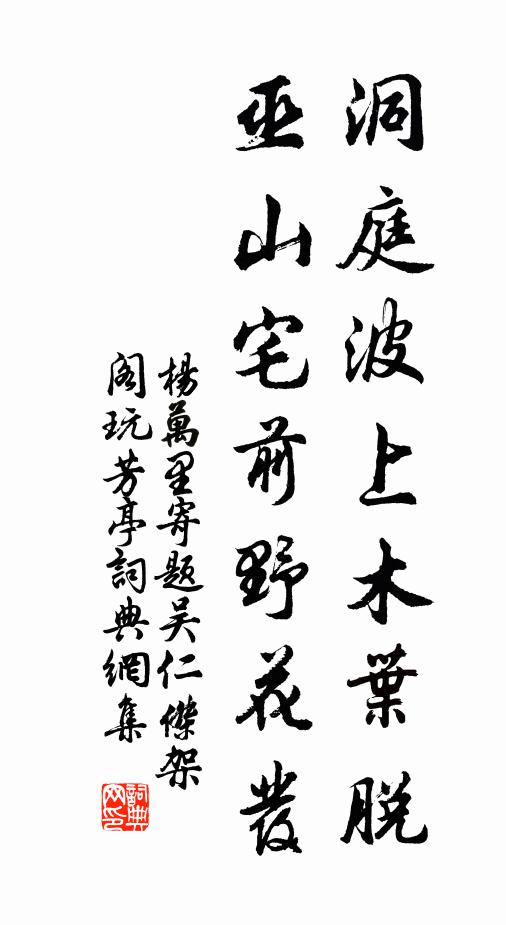 洞庭波上木葉脱
巫山宅前野花發
楊萬里寄題吴仁傑架
阁玩芳亭詞典網集
詞典网印